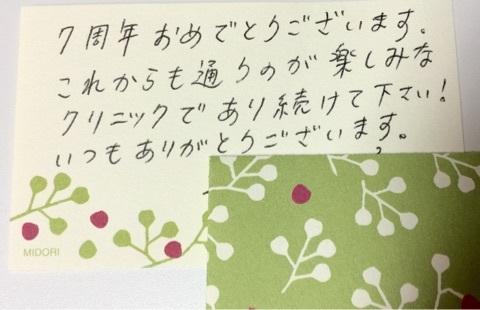 7周年おめでとうございます。
これからも通うのが楽しみな
クリニックであり続けて下さい!
いつもありがとうございます。
MIDORI